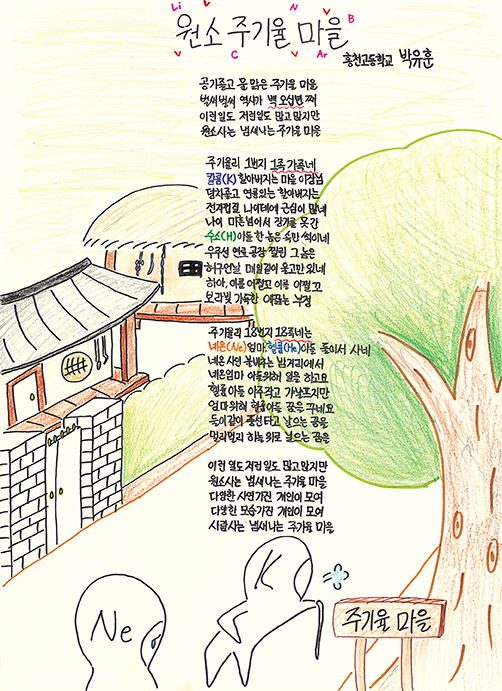 Li N B
원소 주기율 마을
C Ar
홍천고등학교 박유훈
공기좋고 물 맑은 주기율 마을
벌써벌써 역사가 백 오십년 째
이런일도 저런일도 많고 많지만
원소사는 냄새나는 주기율 마을
주기율리 1번지 1족 가족네
칼륨(K) 할아버지는 마을 이장님
덩치좋고 연륜있는 할아버지는
전자껍질 나이테에 근심이 많네
나이 마흔넘어서 장가를 못간
수소(H)아들 한 놈은 속만 썩이네
우주선 연료공장 짤린 그 놈은
허구언날 매일같이 울고만 있네
하아, 이를 어쩔꼬 이를 어쩔꼬
보라빛 가득한 애끓는 부정
주기율리 18번지 18족네는
네온(Ne)엄마, 헬륨(He)아들 둘이서 사네
네온사인 불비추는 밤거리에서
네온엄마 아들위해 일을 하고요
헬륨아들 아주작고 가냘프지만
엄마위해 헬륨아들 꿈을 꾸네요
둘이같이 풍선타고 날으는 꿈을
멀리멀리 하늘 위로 날으는 꿈을
이런 일도 저런일도 많고 많지만
원소사는 냄새나는 주기율 마을
다양한 사연가진 개인이 모여
다양한 모습가진 개인이 모여
시끌사는 냄새나는 주기율 마을
Ne
K
주기율 마을